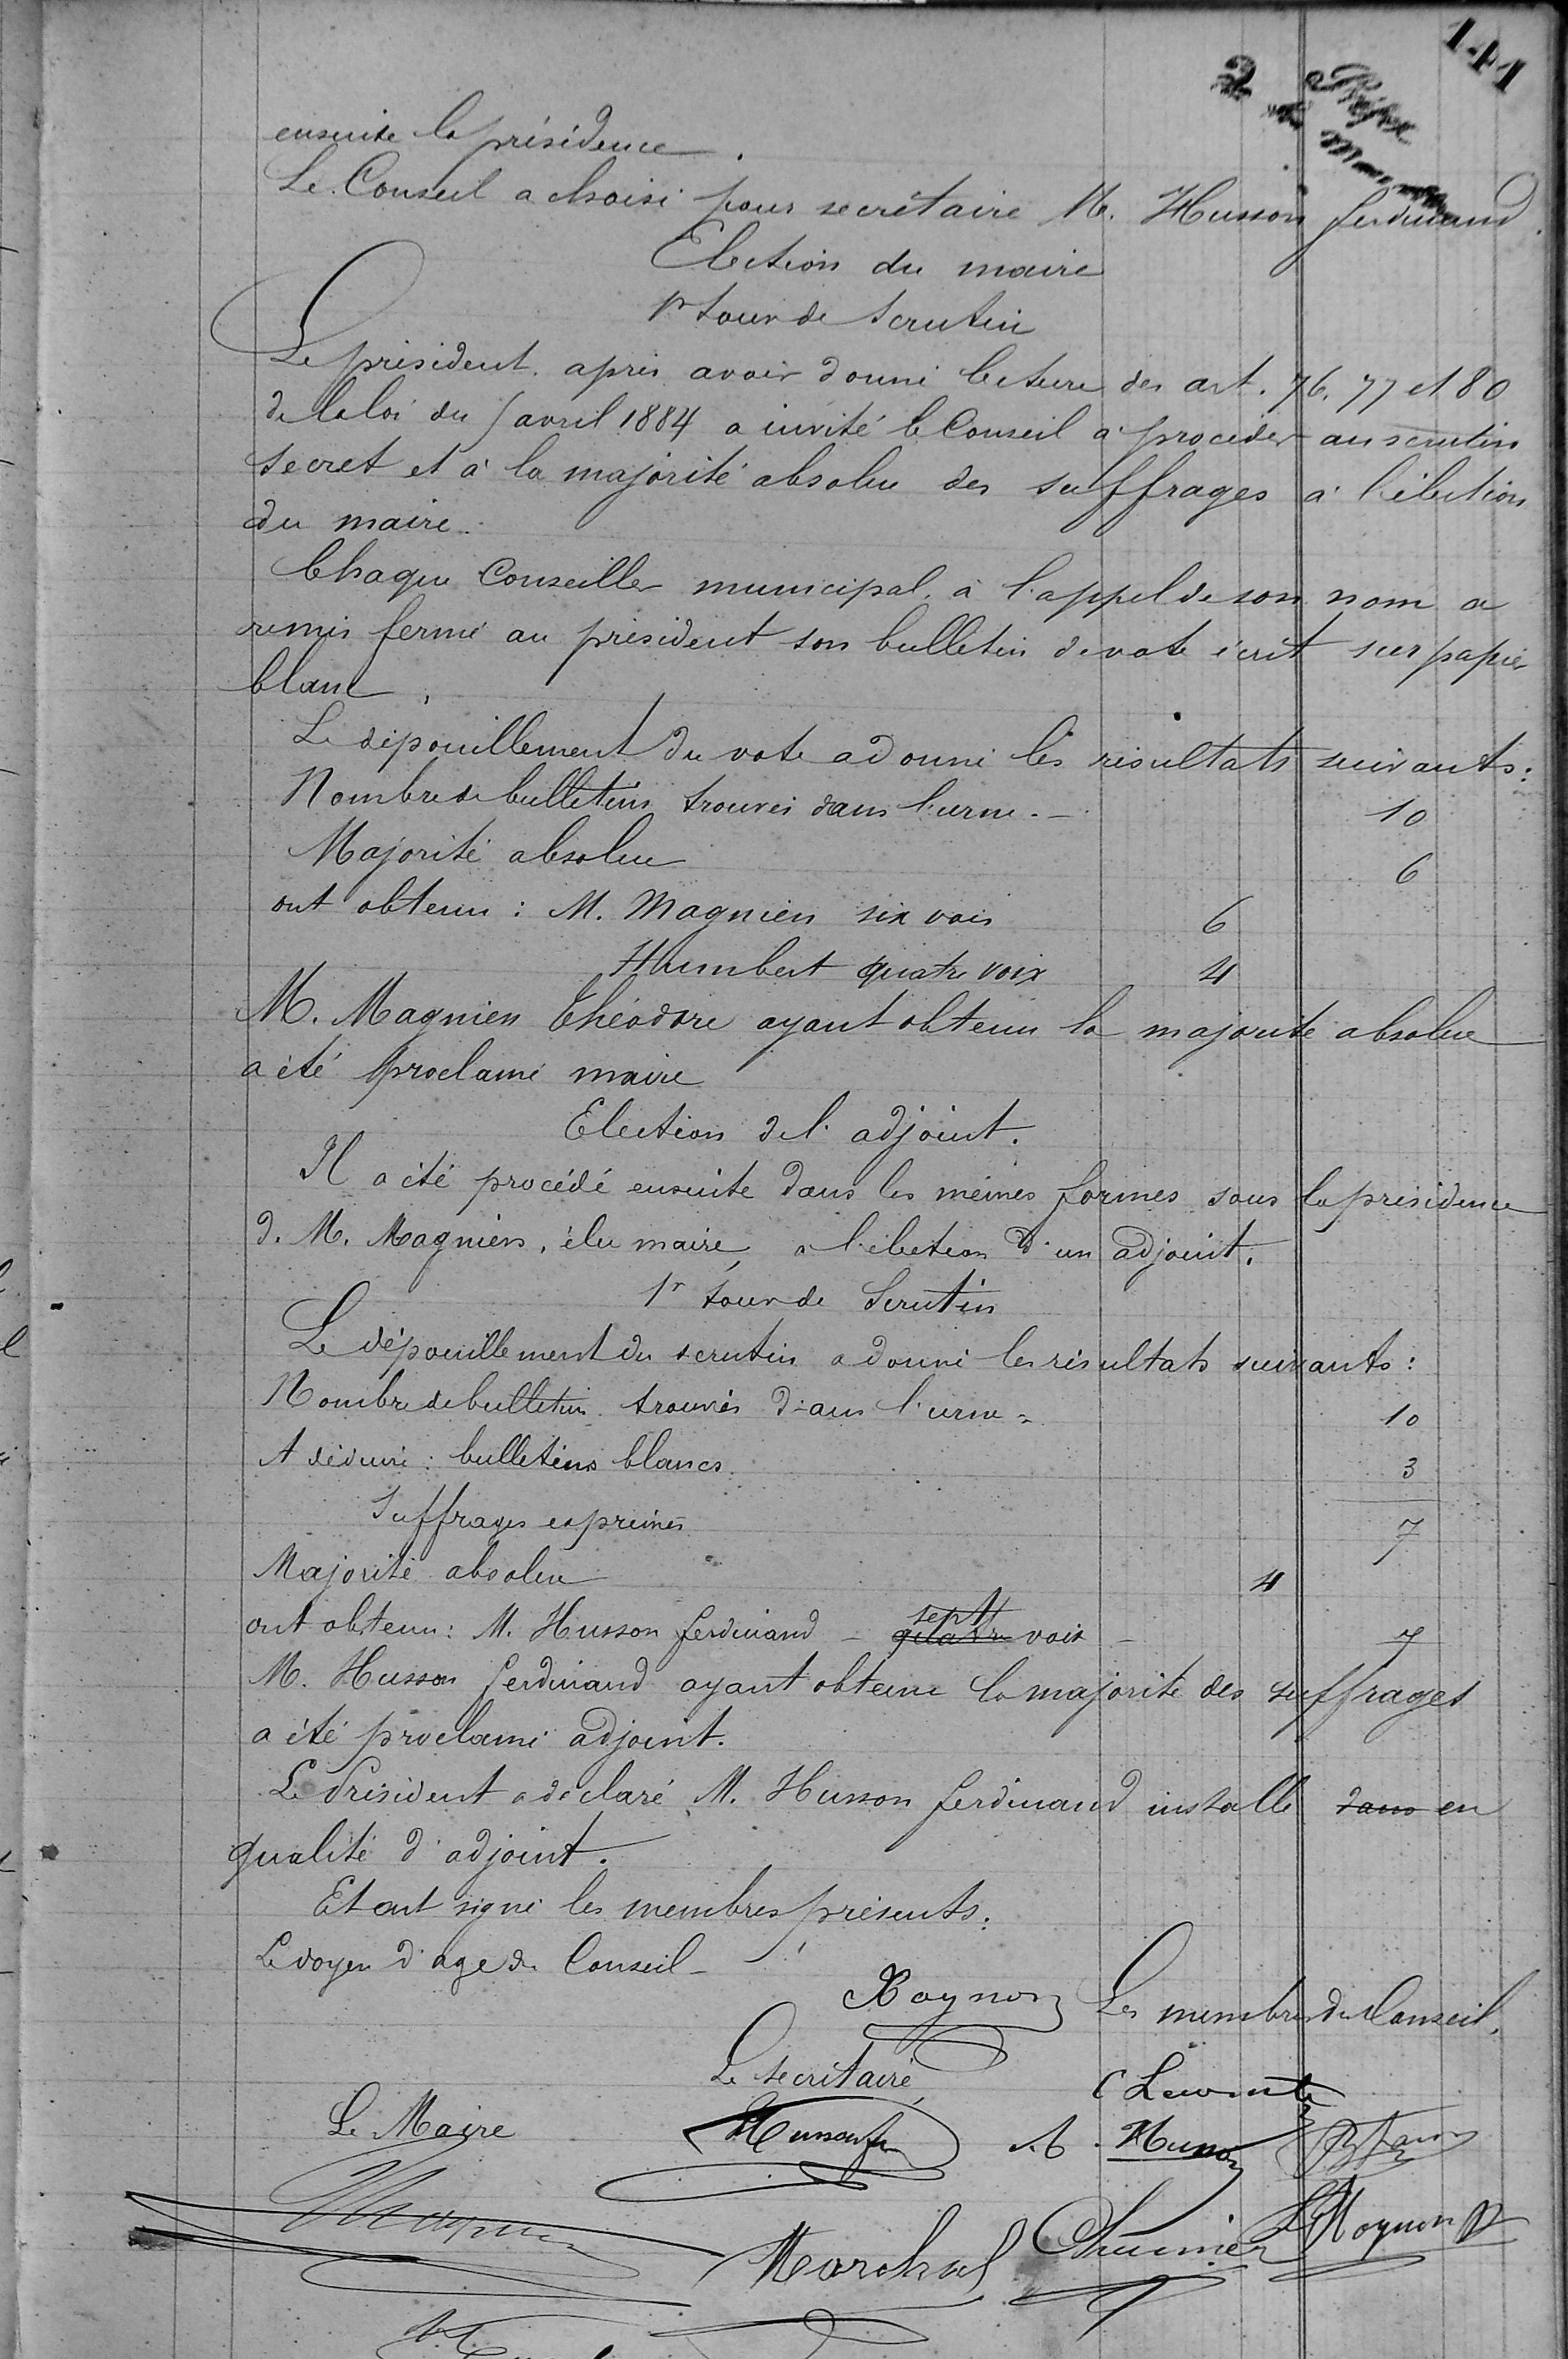 141
2
ensuite la présidence.
Le Conseil a choisi pour secrétaire M. Husson Ferdinand.
Election du maire
1r tour de scrutin
Le président, après avoir donné lecture des art. 76, 77 et 80
de la loi du 5 avril 1884 a invité le Conseil à procéder au scrutin
secret et à la majorité absolue des suffrages à l'élection
du maire.
Chaque Conseiller municipal, à l'appel de son nom a
remis fermé au président son bulletin de vote écrit sur papier
blanc.
Le dépouillement du vote a donné les résultats suivants:
Nombre de bulletins trouvés dans l'urne. – 10
Majorité absolue 6
ont obtenu : M. Magnien six voix 6
Humbert quatre voix 4
M. Magnien Théodore ayant obtenu la majorité absolue
a été proclamé maire
Election de l'adjoint.
Il a été procédé ensuite dans les mêmes formes sous la présidence
d. M. Magnien, élu maire, a l'élection d'un adjoint.
1r tour de Scrutin
Le dépouillement du scrutin a donné les résultats suivants :
Nombre de bulletins trouvés dans l'urne = 10
A déduire : bulletins blancs 3
Suffrages exprimés 7
Majorité absolue 4
ont obtenu : M. Husson Ferdinand – quatre sept voix – 7
M. Husson Ferdinand ayant obtenu la majorité des suffrages
a été proclamé adjoint.
Le Président a déclaré M. Husson Ferdinand installé dans en
qualité d'adjoint.
Et ont signé les membres présents.
Le doyen d'age du Conseil –
Noynon Les membres du Conseil,
Le secrétaire, C Lecomte
Le Maire Husson fer A. Husson
Magnien
Marchal Noynon